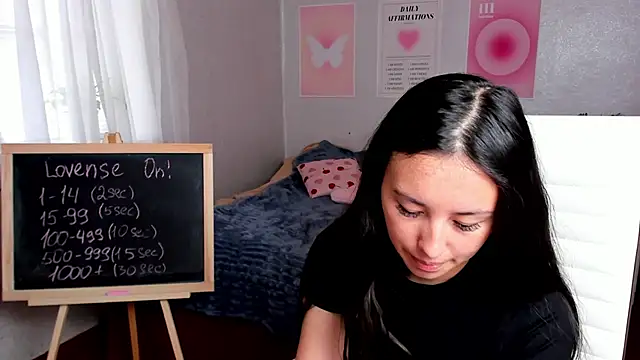 Lovense On!
1-14 (2sec)
15-99 (5sec)
100-499 (10sec)
500-999 (15sec)
1000+ (30sec)
DAILY
AFFIRMATIONS
111